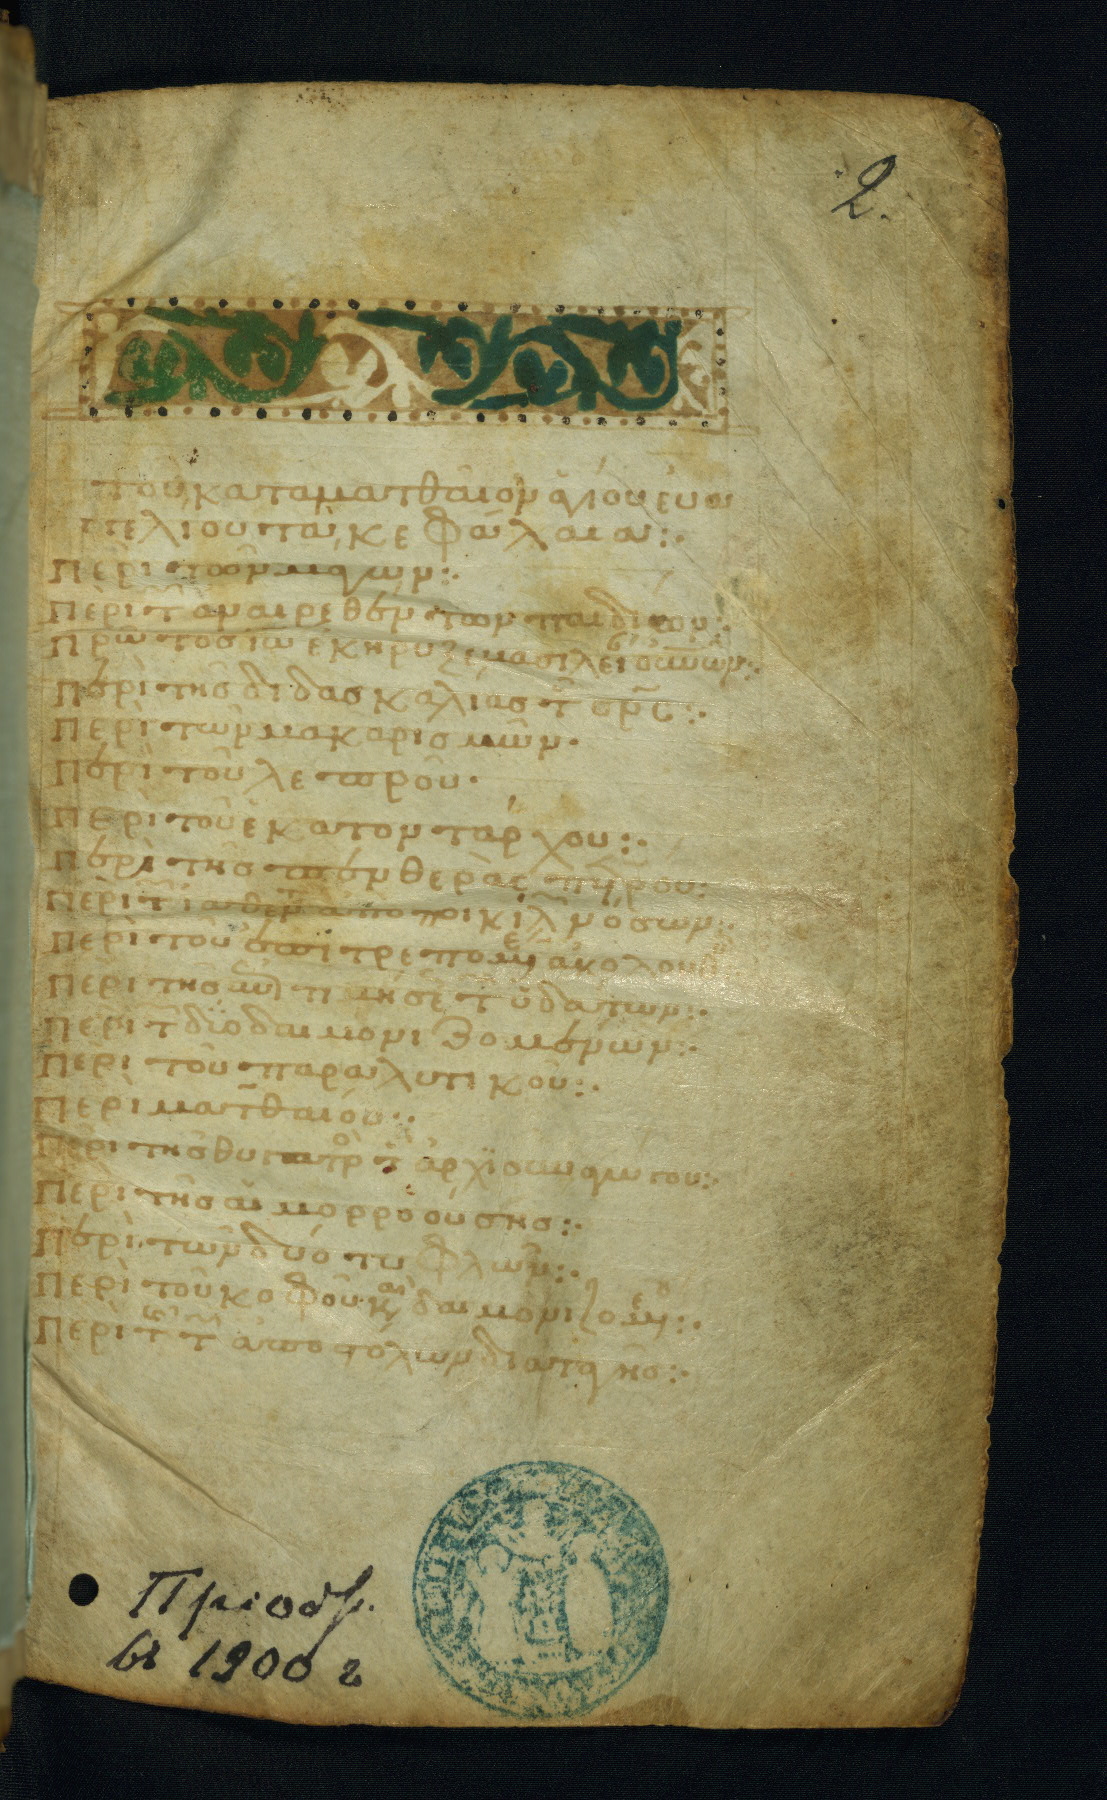 2.
του κατα ματθαιον ἁγίου ευα
γγελιου τα κεφάλαια:.
Περὶ τῶν μάγων:.
Περὶ τ ἀναιρεθέν των παιδίων:.
Πρῶτος ἰω ἐκήρυξε
Περὶ τῆς διδασκαλίας τ
Περὶ τῶν μακαρισμῶν.
Περὶ τοῦ λεπροῦ.
Περὶ τοῦ ἑκατοντάρχου:.
Περὶ τῆς πενθερᾶς
Περὶ τ ἰαθεν ἀπὸ ποικιλ νόσων:.
Περὶ τοῦ ἀκολουθ
Περὶ τῆς ὑδάτων:.
Περὶ τ δύο δαιμονιζομένων:.
Περὶ τοῦ παραλυτικοῦ:.
Περὶ ματθαίου:.
Περὶ τῆς θυγατρ τ ἀρχισυναγώγου:.
Περὶ τῆς αἱμορροούσης:.
Περὶ τῶν δύο τυφλῶν:.
Περὶ τοῦ κωφοῦ
Περὶ τ τ ἀποστόλων διαταγῆς:.
Пріобр.
въ 1900 г